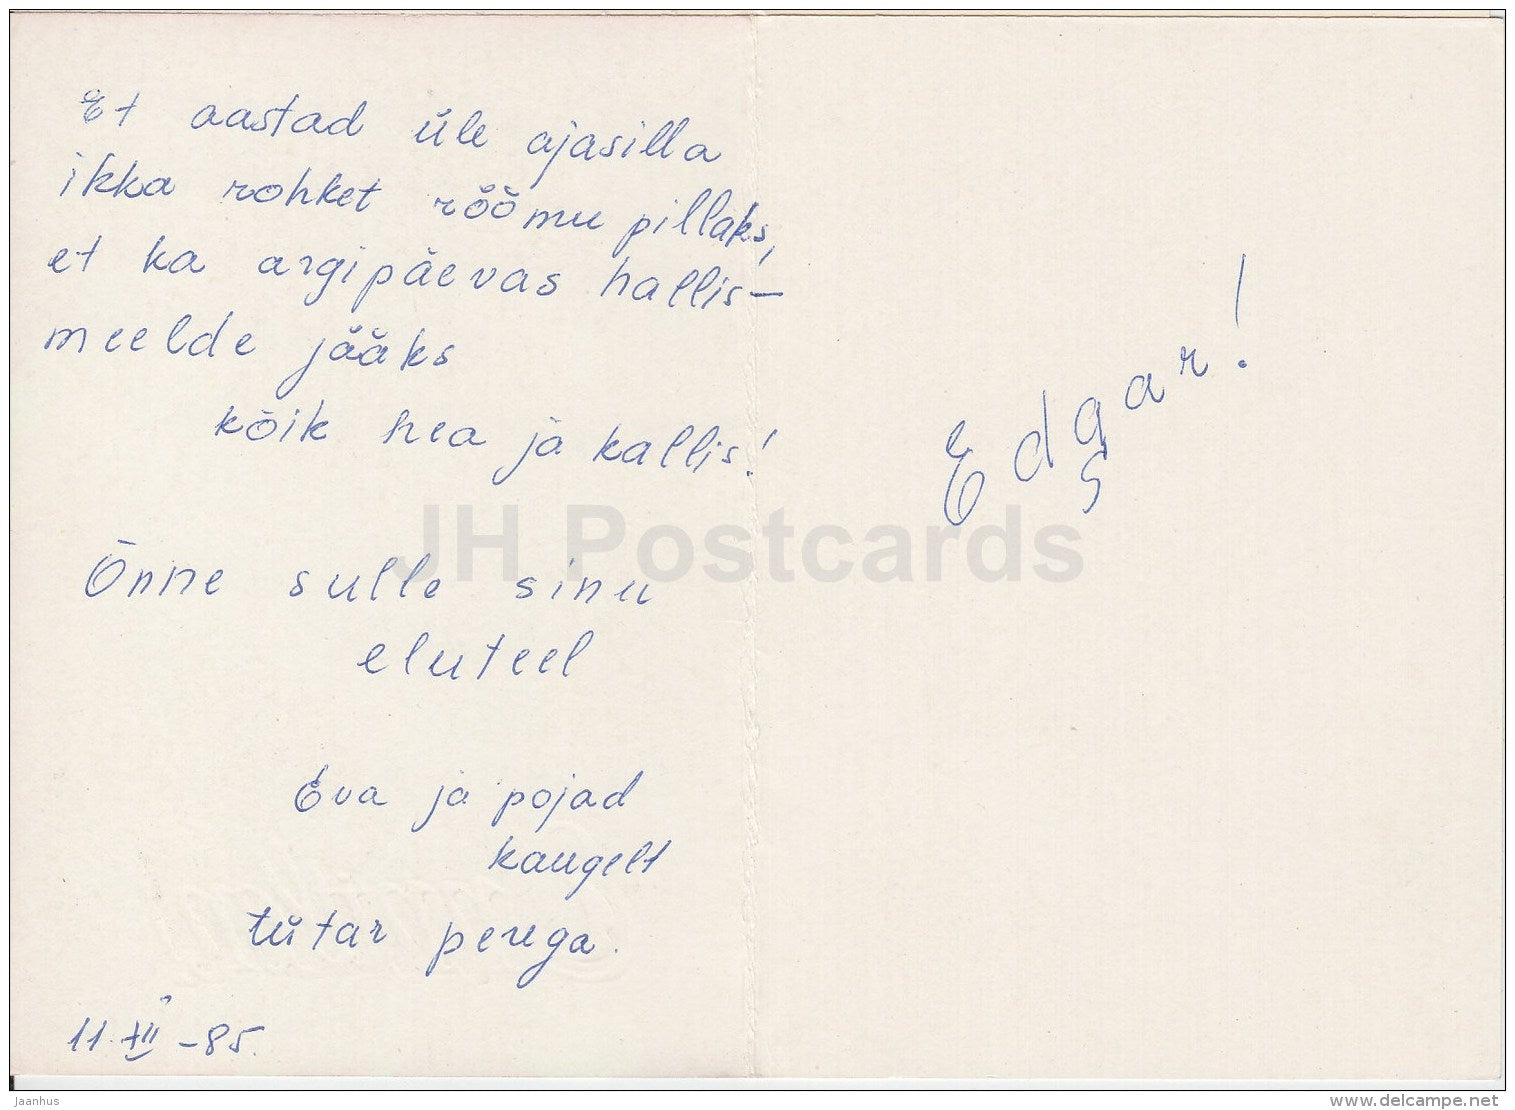 Et aastad üle ajasilla
ikka rohket rõõmu pillaks,
et ka argipäevas hallis–
meelde jääks
kõik hea ja kallis!
Õnne sulle sinu
eluteel
Eva ja pojad
kaugelt
tütar perega.
11. XII –85.
Edgar!
JH Postcards
Jaanhus
www.delcampe.net